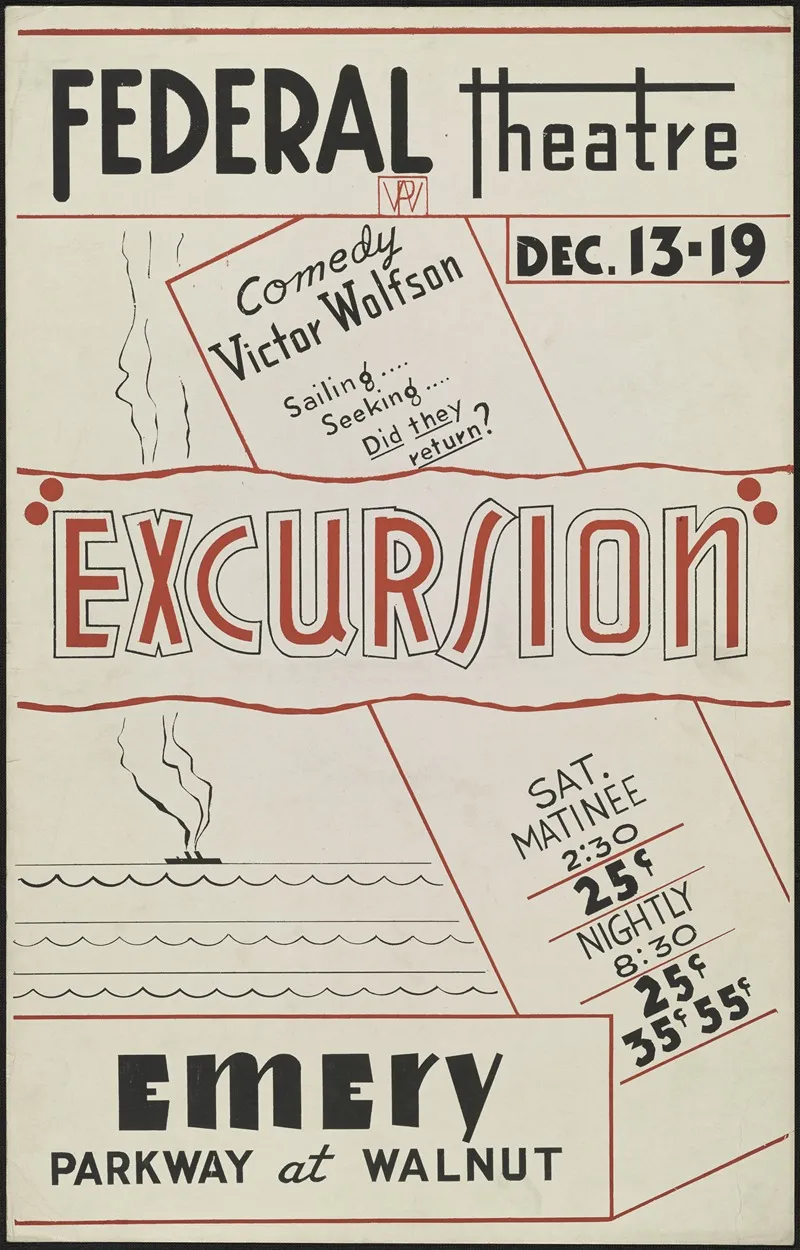 FEDERAL theatre
WPA
DEC. 13-19
Comedy
Victor Wolfson
Sailing....
Seeking....
Did they
return?
EXCURSION
SAT.
MATINÉE
2:30
25¢
NIGHTLY
8:30
25¢
35¢ 55¢
EMERY
PARKWAY at WALNUT